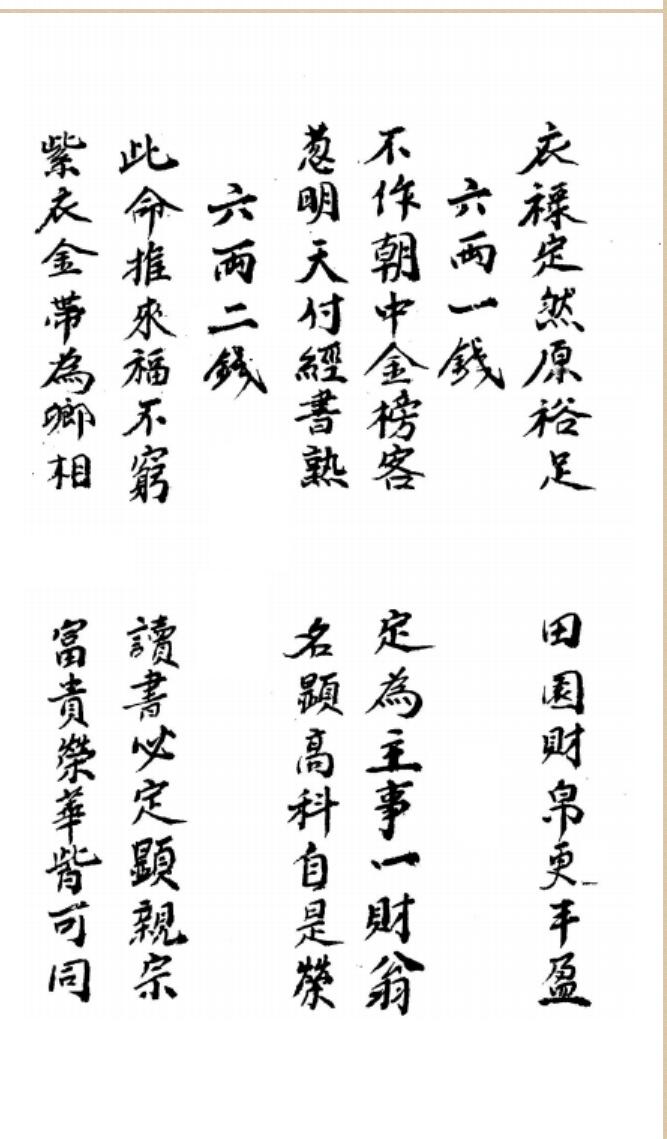 衣祿定然原裕足 田園財帛更丰盈
六兩一錢
不作朝中金榜客 定為主事一財翁
葱明天付經書熟 名顯高科自是榮
六兩二錢
此命推來福不窮 讀書必定顯親宗
紫衣金帶為卿相 富貴榮華皆可同